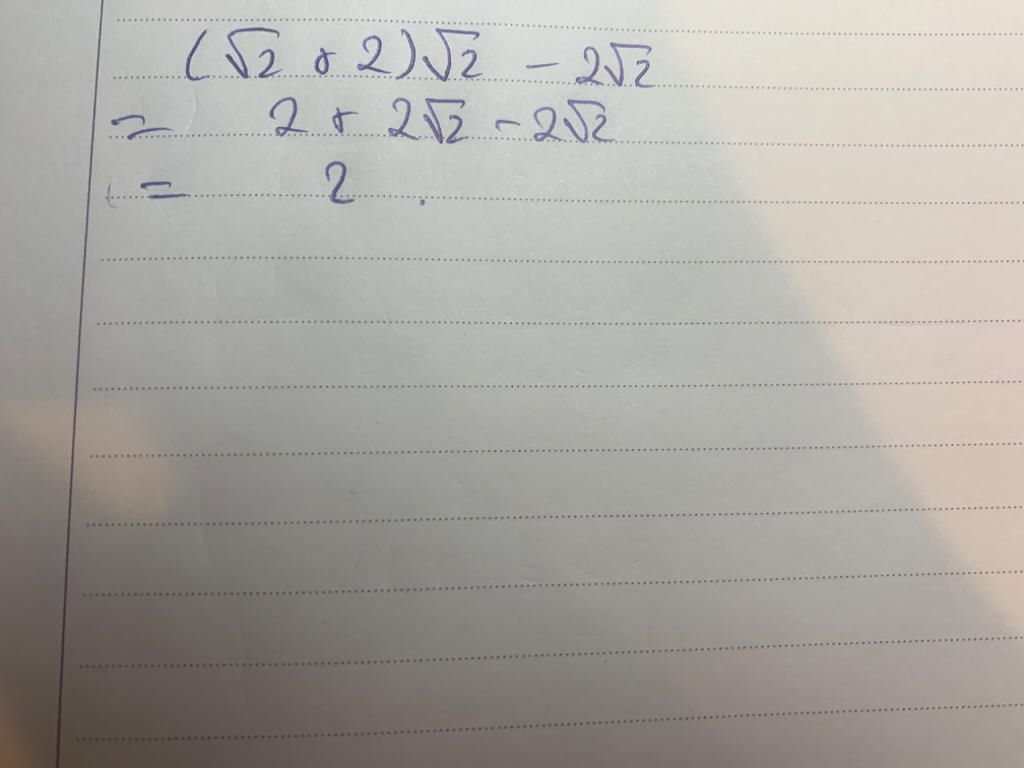 (√2 + 2)√2 - 2√2
= 2 + 2√2 - 2√2
= 2 .